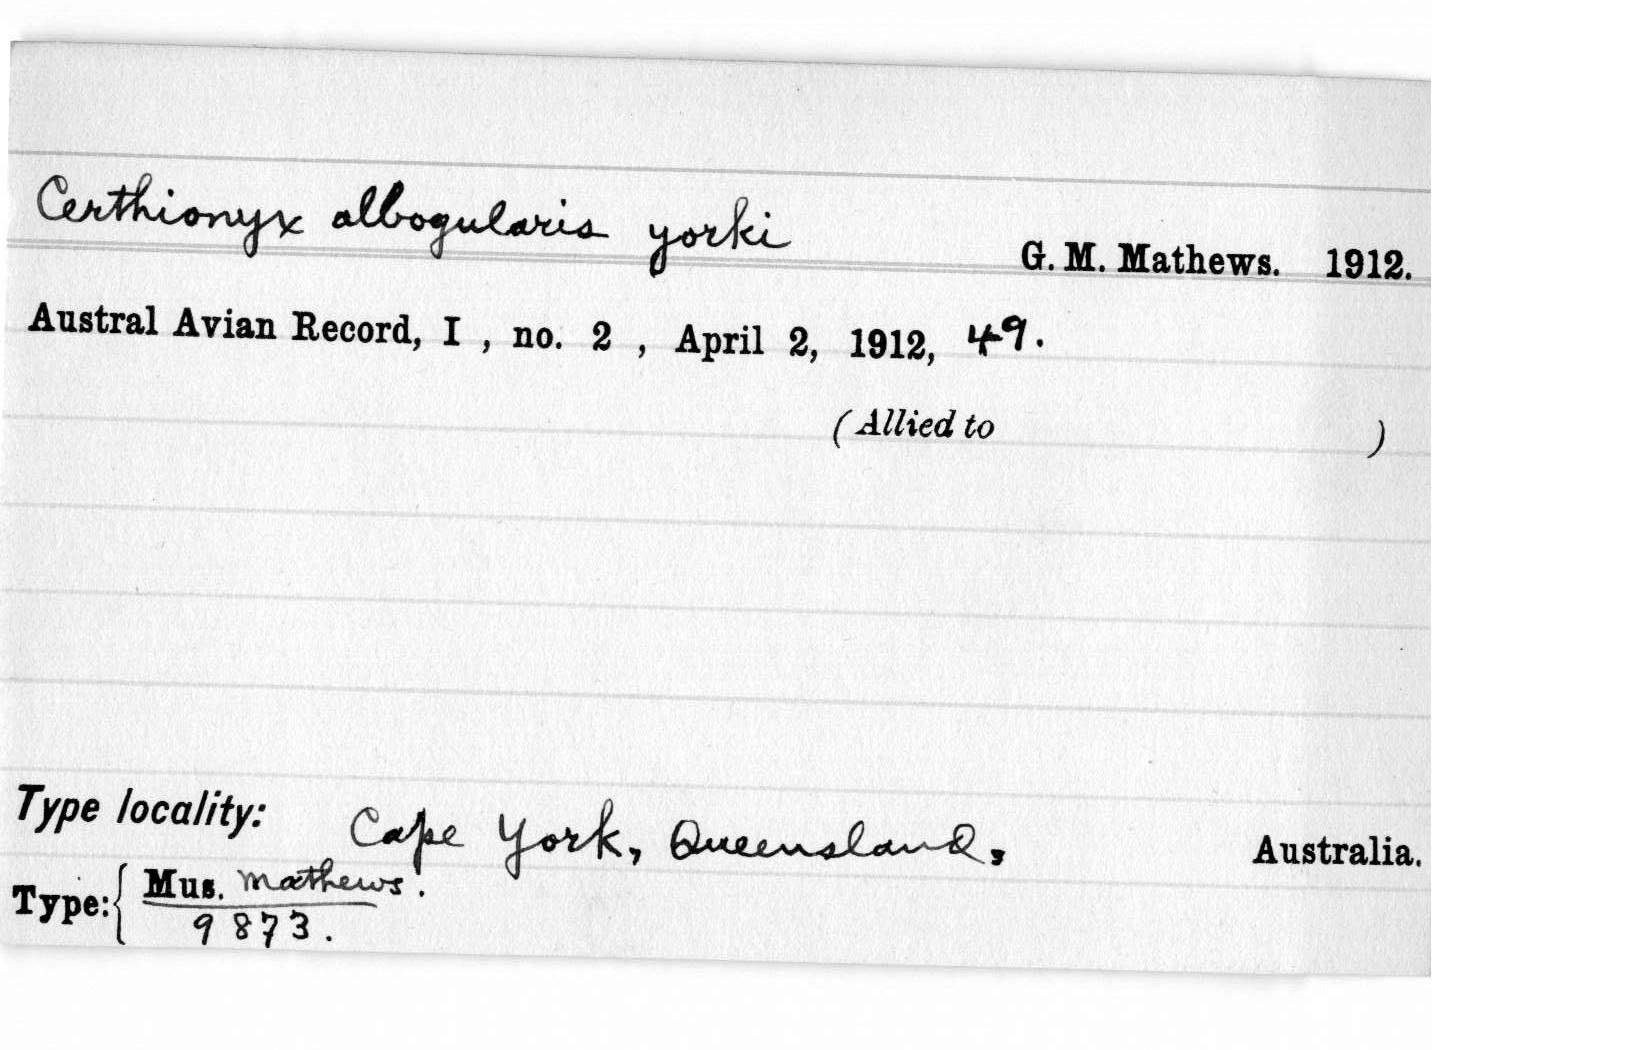 Certhionyx albogularis yorki G. M. Mathews. 1912.
Austral Avian Record, I , no. 2 , April 2, 1912, 49.
(Allied to )
Type locality: Cape York, Queensland, Australia.
Type: { Mus. Mathews.
9873.